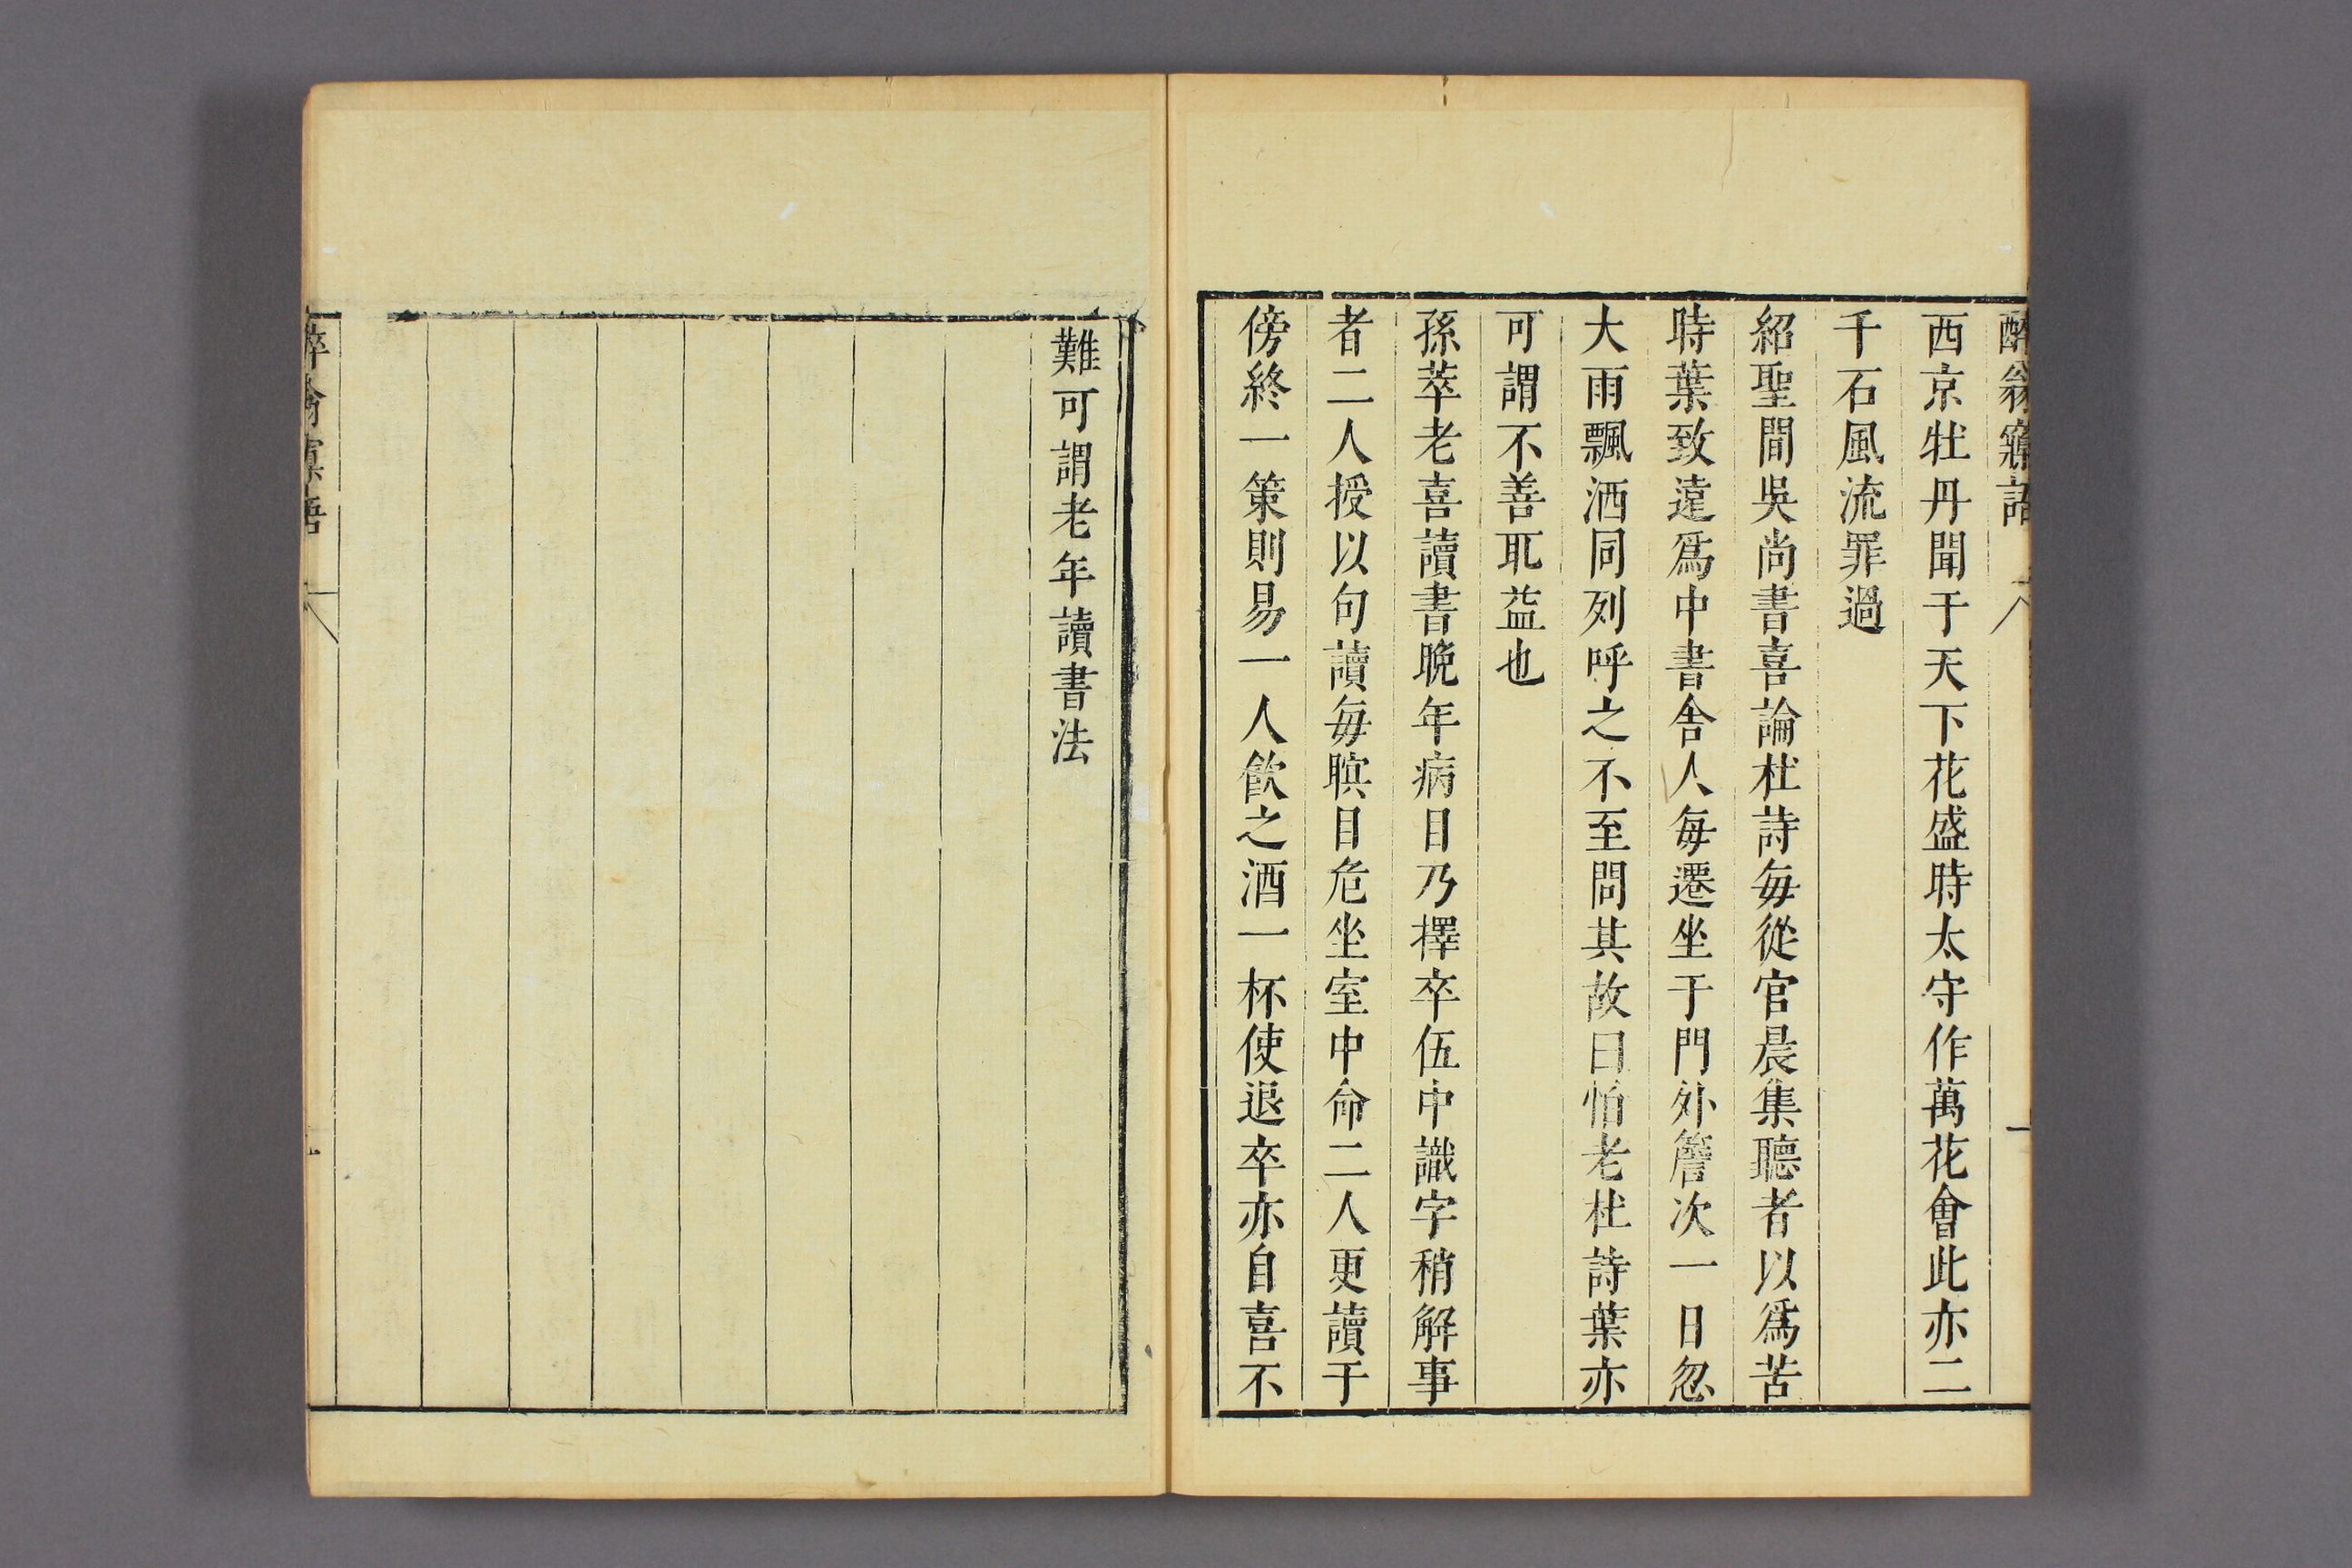 醉翁寱語
西京牡丹聞于天下花盛時太守作萬花會此亦二
千石風流罪過
紹聖間吳尚書喜論杜詩每從官晨集聽者以爲苦
時葉致遠爲中書舍人每遷坐于門外簷次一日忽
大雨飄洒同列呼之不至問其故曰怕老杜詩葉亦
可謂不善耴益也
孫莘老喜讀書晚年病目乃擇卒伍中識字稍解事
者二人授以句讀每瞑目危坐室中命二人更讀于
傍終一策則易一人飲之酒一杯使退卒亦自喜不
難可謂老年讀書法